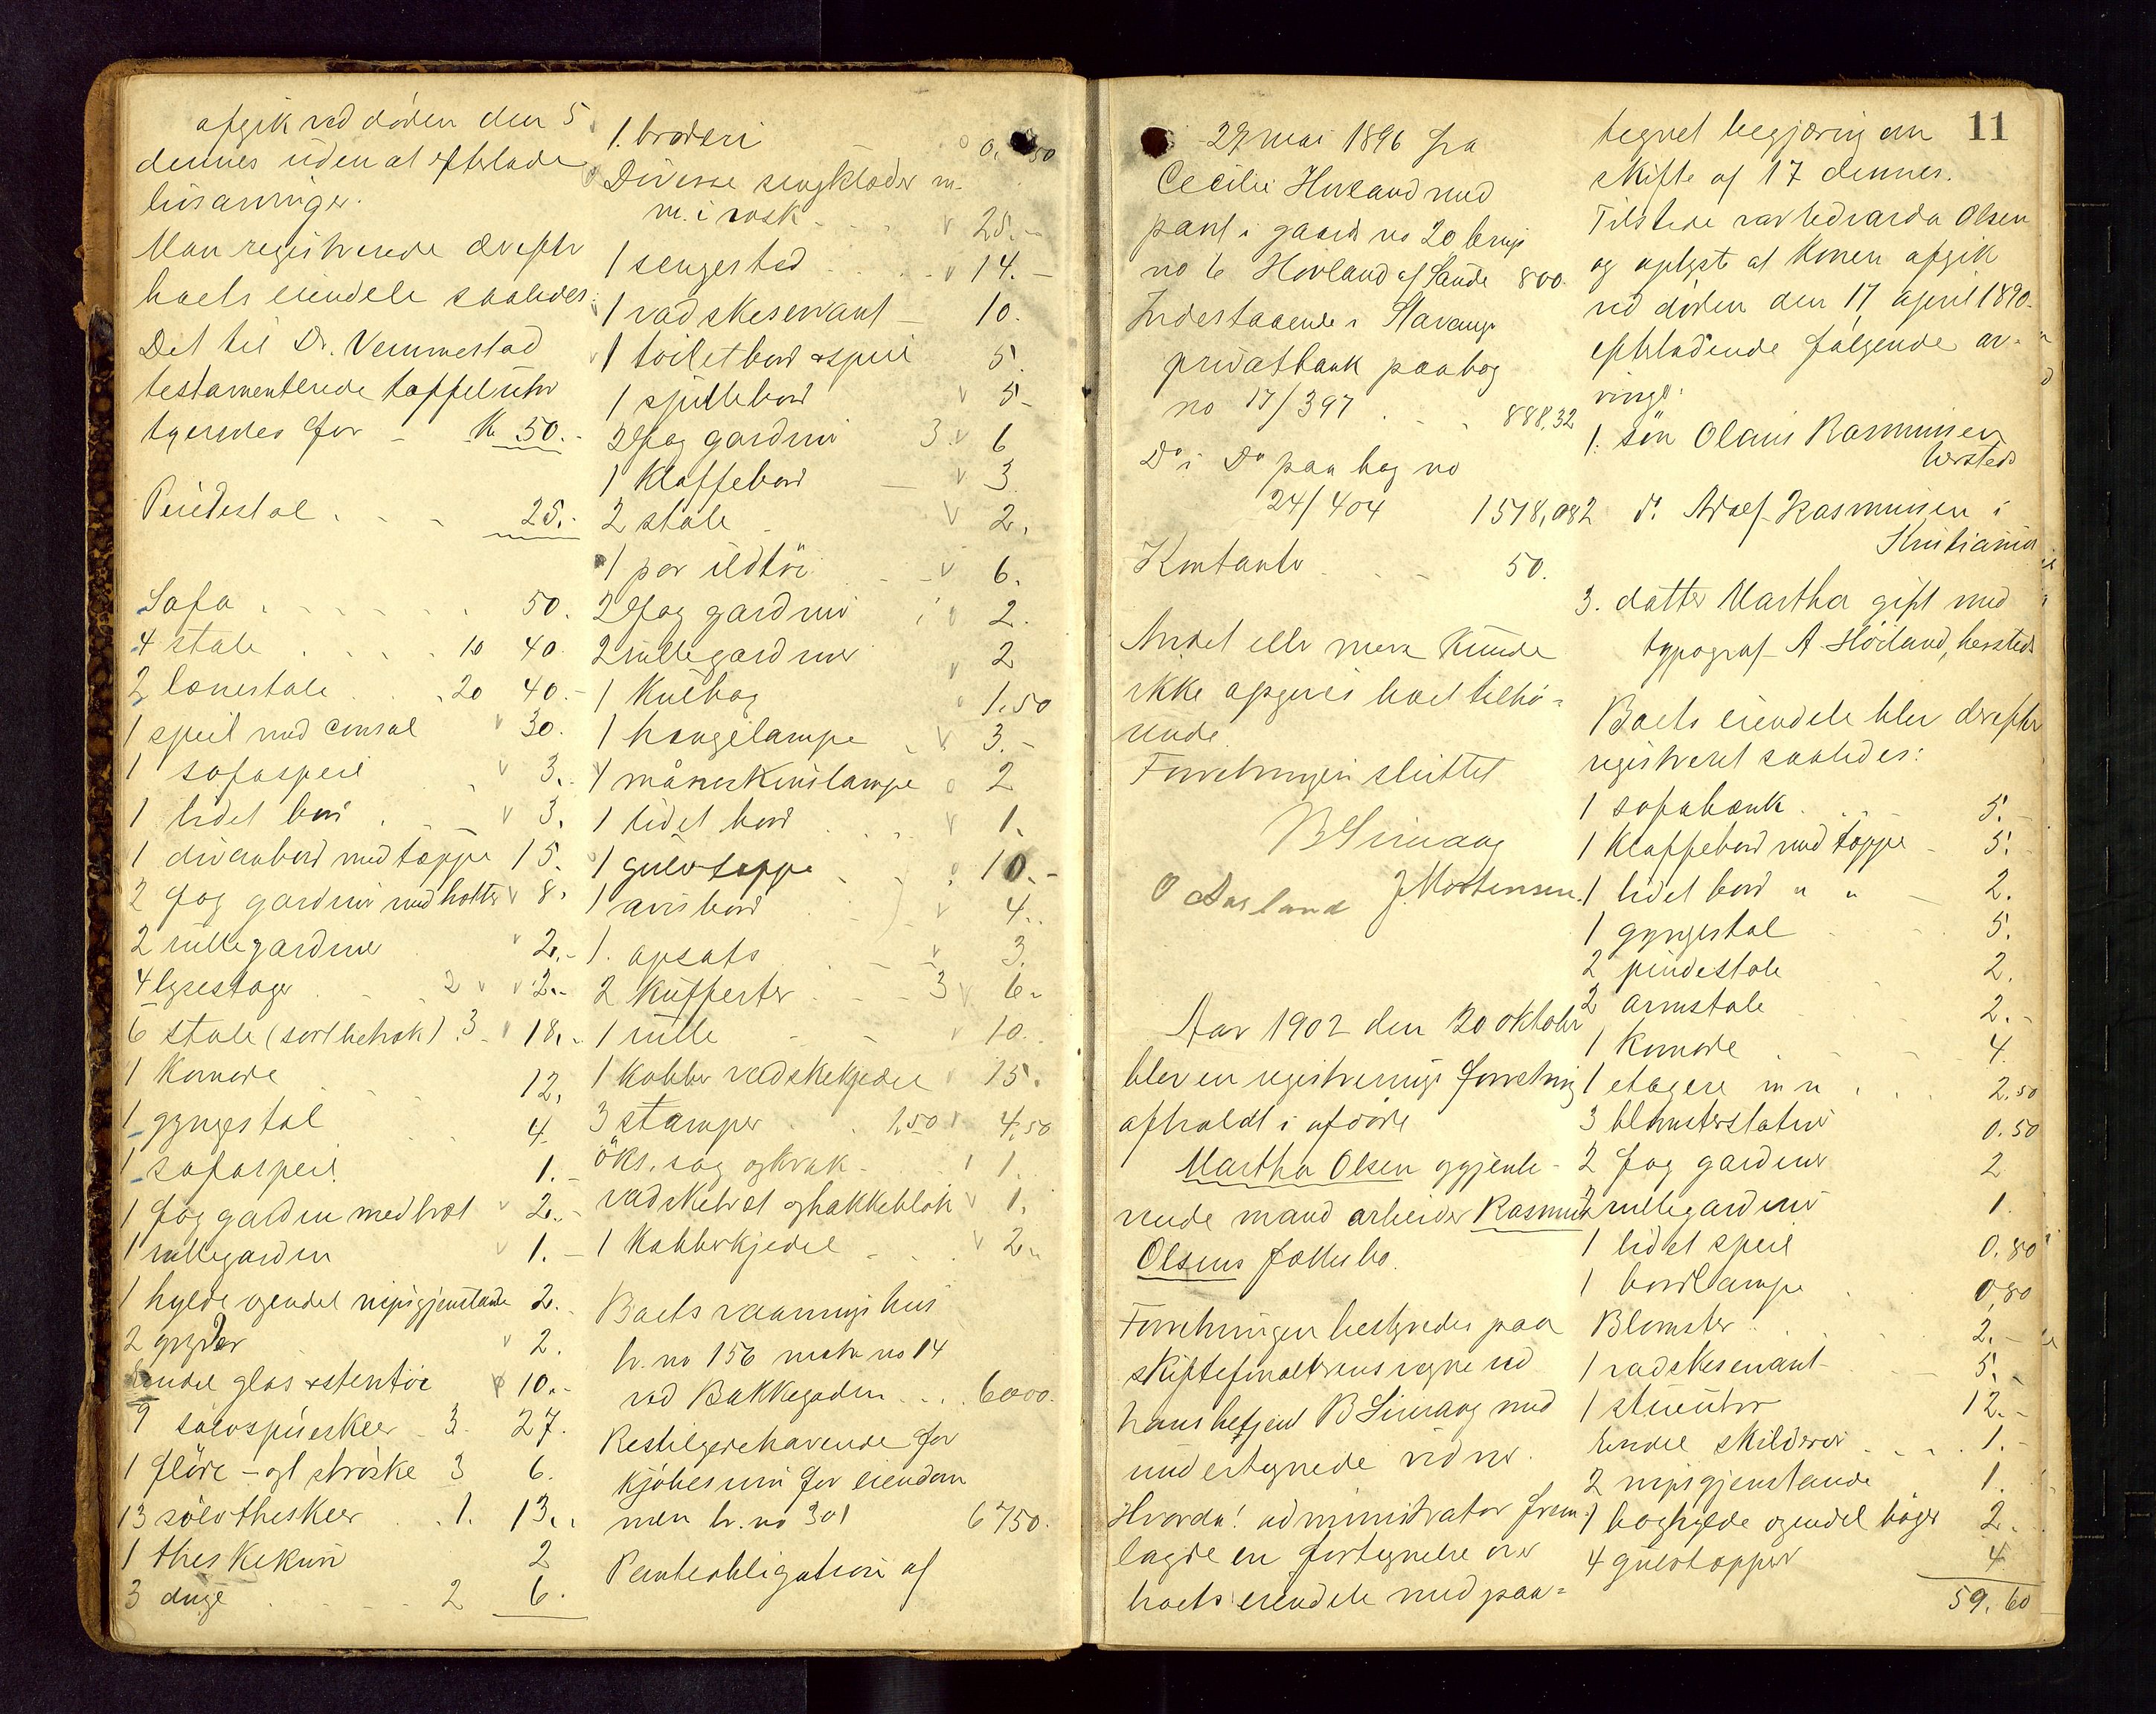 afgik ved döden den 5
dennes uden at efterlade
livsarvinger.
Man registrerede derefter
boets eiendele saaledes:
Det til Dr. Vemmestad
testamenterede taffeluhr
Kr 50.-
25.-
Sofa 50.
4 stole 10 40.
2 lænestole 20 40.-
1 speil med consol v 30.
1 sofaspeil v 3.-
1 lidet bord v 3.
1 divanbord med tæppe 15.
2 fag gardiner med holter v 8.
2 rullegardiner v 2.-
4 lysestager 2 v v 2.-
6 stole (sort betræk) 3 v 18.-
1 Komode 12.
1 gyngestol 4.
1 sofaspeil 1.-
1 fag gardin med bræt v 2.-
1 rullegardin v 1.-
1 hylde og endel nipsgjenstande 2.-
2 gryder v 2.
Endel glas & stentöi 10.-
9 sölvspiseskeer 3. 27.
1 flöde- og 1 ströske 3 6.
13 sölvtheskeer 1. 13.
1 2
3 duge 2 6.
1 broderi 0.50
Diverse sengklæder m.
m. i v 25.-
1 sengested v 14.-
1 vadskeservant 10.
1 toiletbord & speil 5.
1 spillebord v 5-
2 fag gardiner 3 v 6
1 Klaffebord v 3
2 stole v 2.
1 par ildtöi v 6.
2 fag gardiner 2.
2 rullegardiner v 2
1 1.50
1 hængelampe v 3.-
1 måneskinslampe 2
1 lidet bord v 1.
1 gulvtæppe 10.-
1 avisbord v 4.
1. opsats v 3.
2 Kufferter 3 v 6-
1 rulle v 10.
1 Kobber vadskekjedel v 15.
3 stamper 1,50 v 4,50
öks, sag og 1.
vadskebræt og hakkeblok v 1.
1 Kobberkjedel v 2.-
Boets vaaningshus
br. no 156 matr no 14
ved Bakkegaden 6000.
Restilgodehavende for
kjöbesum for eiendom
men br. no 301 6750.
Panteobligation af
29 mai 1896 fra
Cecilie med
pant i gaards no 20 brugs
no 6 Hövland af Sande 800.
Indestaaende i Stavanger
privatbank paa bog
no 17/397 888,32
Do i Do paa bog no
24/404 1518,08
Kontanter 50.
Andet eller mere kunde
ikke opgives boet tilhö-
rende.
Forretningen sluttet
O Aasland J. Mortensen.
Aar 1902 den 20 oktober
blev en registrerings forretning
afholdt i afdöde
Martha Olsen og gjenle-
vende mand arbeider Rasmus
Olsens fællesbo.
Forretningen bestyredes paa
skifteforvalterens vegne ved
hans betjent med
undertegnede vidner.
Hvorda! administrator frem-
lagde en fortegnelse over
boets eiendele med paa-
11
tegnet begjæring om
skifte af 17 dennes.
Tilstede var Olsen
og oplyste at Konen afgik
ved döden den 17 april 1890
efterladende fölgende ar-
vinger:
1. sön Olaus Rasmussen
hersteds
2 do. Adolf Rasmussen i
Kristiania
3. datter Martha gift med
typograf A. Höiland, hersteds
Boets eiendele blev derefter
registreret saaledes:
1 sofabænk 5.-
1 Klaffebord med tæppe 5.-
1 lidet bord " " 2.
1 gyngestol 5.
2 pindestole 2.
2 armstole 2.-
1 Komode 4.
1 etagere m m 2,50
3 blomsterstativ 0.50
2 fag gardiner 2
2 rullegardiner 1.
1 lidet speil 0.80
1 bordlampe 0,80
Blomster 2.-
1 vadskeservant 5.-
1 stueuhr 12.-
Endel skilderier 1.-
2 nipsgjenstande 1.
1 boghylde og endel böger 2.
4 gulvtæpper 4.
59.60